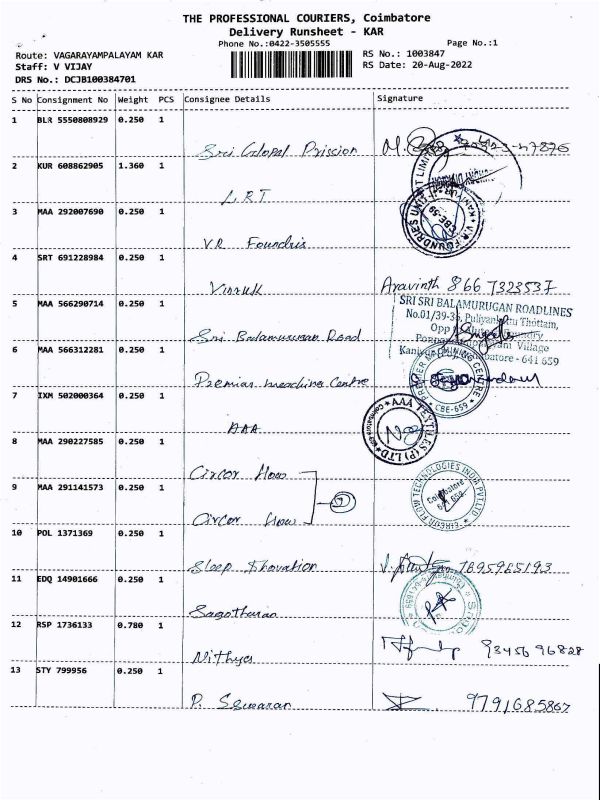 THE PROFESSIONAL COURIERS, Coimbatore
Delivery Runsheet - KAR
Phone No.:0422-3505555
Page No.:1
Route: VAGARAYAMPALAYAM KAR
RS No.: 1003847
Staff: V VIJAY
RS Date: 20-Aug-2022
DRS No.: DCJB100384701
S No Consignment No Weight PCS Consignee Details Signature
1 BLR 5550808929 0.250 1
Sri Glopal
2 KUR 608862905 1.360 1
L.R.T
3 MAA 292007690 0.250 1
V.R Foundris
V.R. FOUNDRIES UNIT CBE-59
4 SRT 691228984 0.250 1
Aravinth 866 7323537
5 MAA 566290714 0.250 1
SRI SRI BALAMURUGAN ROADLINES
No.01/39-3 Puliyan Thottam,
Opp Foundry
Village
- 641 659
Sri Balamurugan Road
6 MAA 566312281 0.250 1
MINING CENTRE
CBE-659
Premier Centre
7 IXM 502000364 0.250 1
AAA
AAA TEXTILES (P) LTD
8 MAA 290227585 0.250 1
Circor flow
9 MAA 291141573 0.250 1
CIRCOR FLOW TECHNOLOGIES INDIA PVT.LTD
Coimbatore
641 659
2
Circor flow
10 POL 1371369 0.250 1
Sleep 7895985193
11 EDQ 14901666 0.250 1
12 RSP 1736133 0.780 1
Nithya 9345696828
13 STY 799956 0.250 1
P. 9791685867